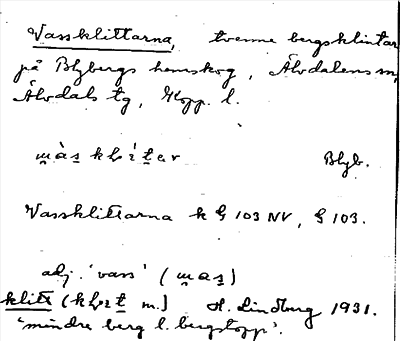 Vassklittarna, tvenne bergsklintar
på Blybergs hemskog, Älvdalens sn,
Älvdals tg, Kopp. l.
Blyb.
Vassklittarna k G 103 NV, G 103.
adj. 'vass' (
klitt ( m.) H. Lindberg 1931.
'mindre berg l. bergstopp'.